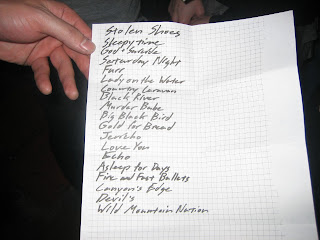 Stolen Shoes
Sleepytime
God + Suicide
Saturday Night
Furr
Lady on the Water
Country Caravan
Black River
Murder Babe
Big Black Bird
Gold for Bread
Jericho
Love You
Echo
Asleep for Days
Fire and Fast Bullets
Canyon's Edge
Devil's
Wild Mountain Nation